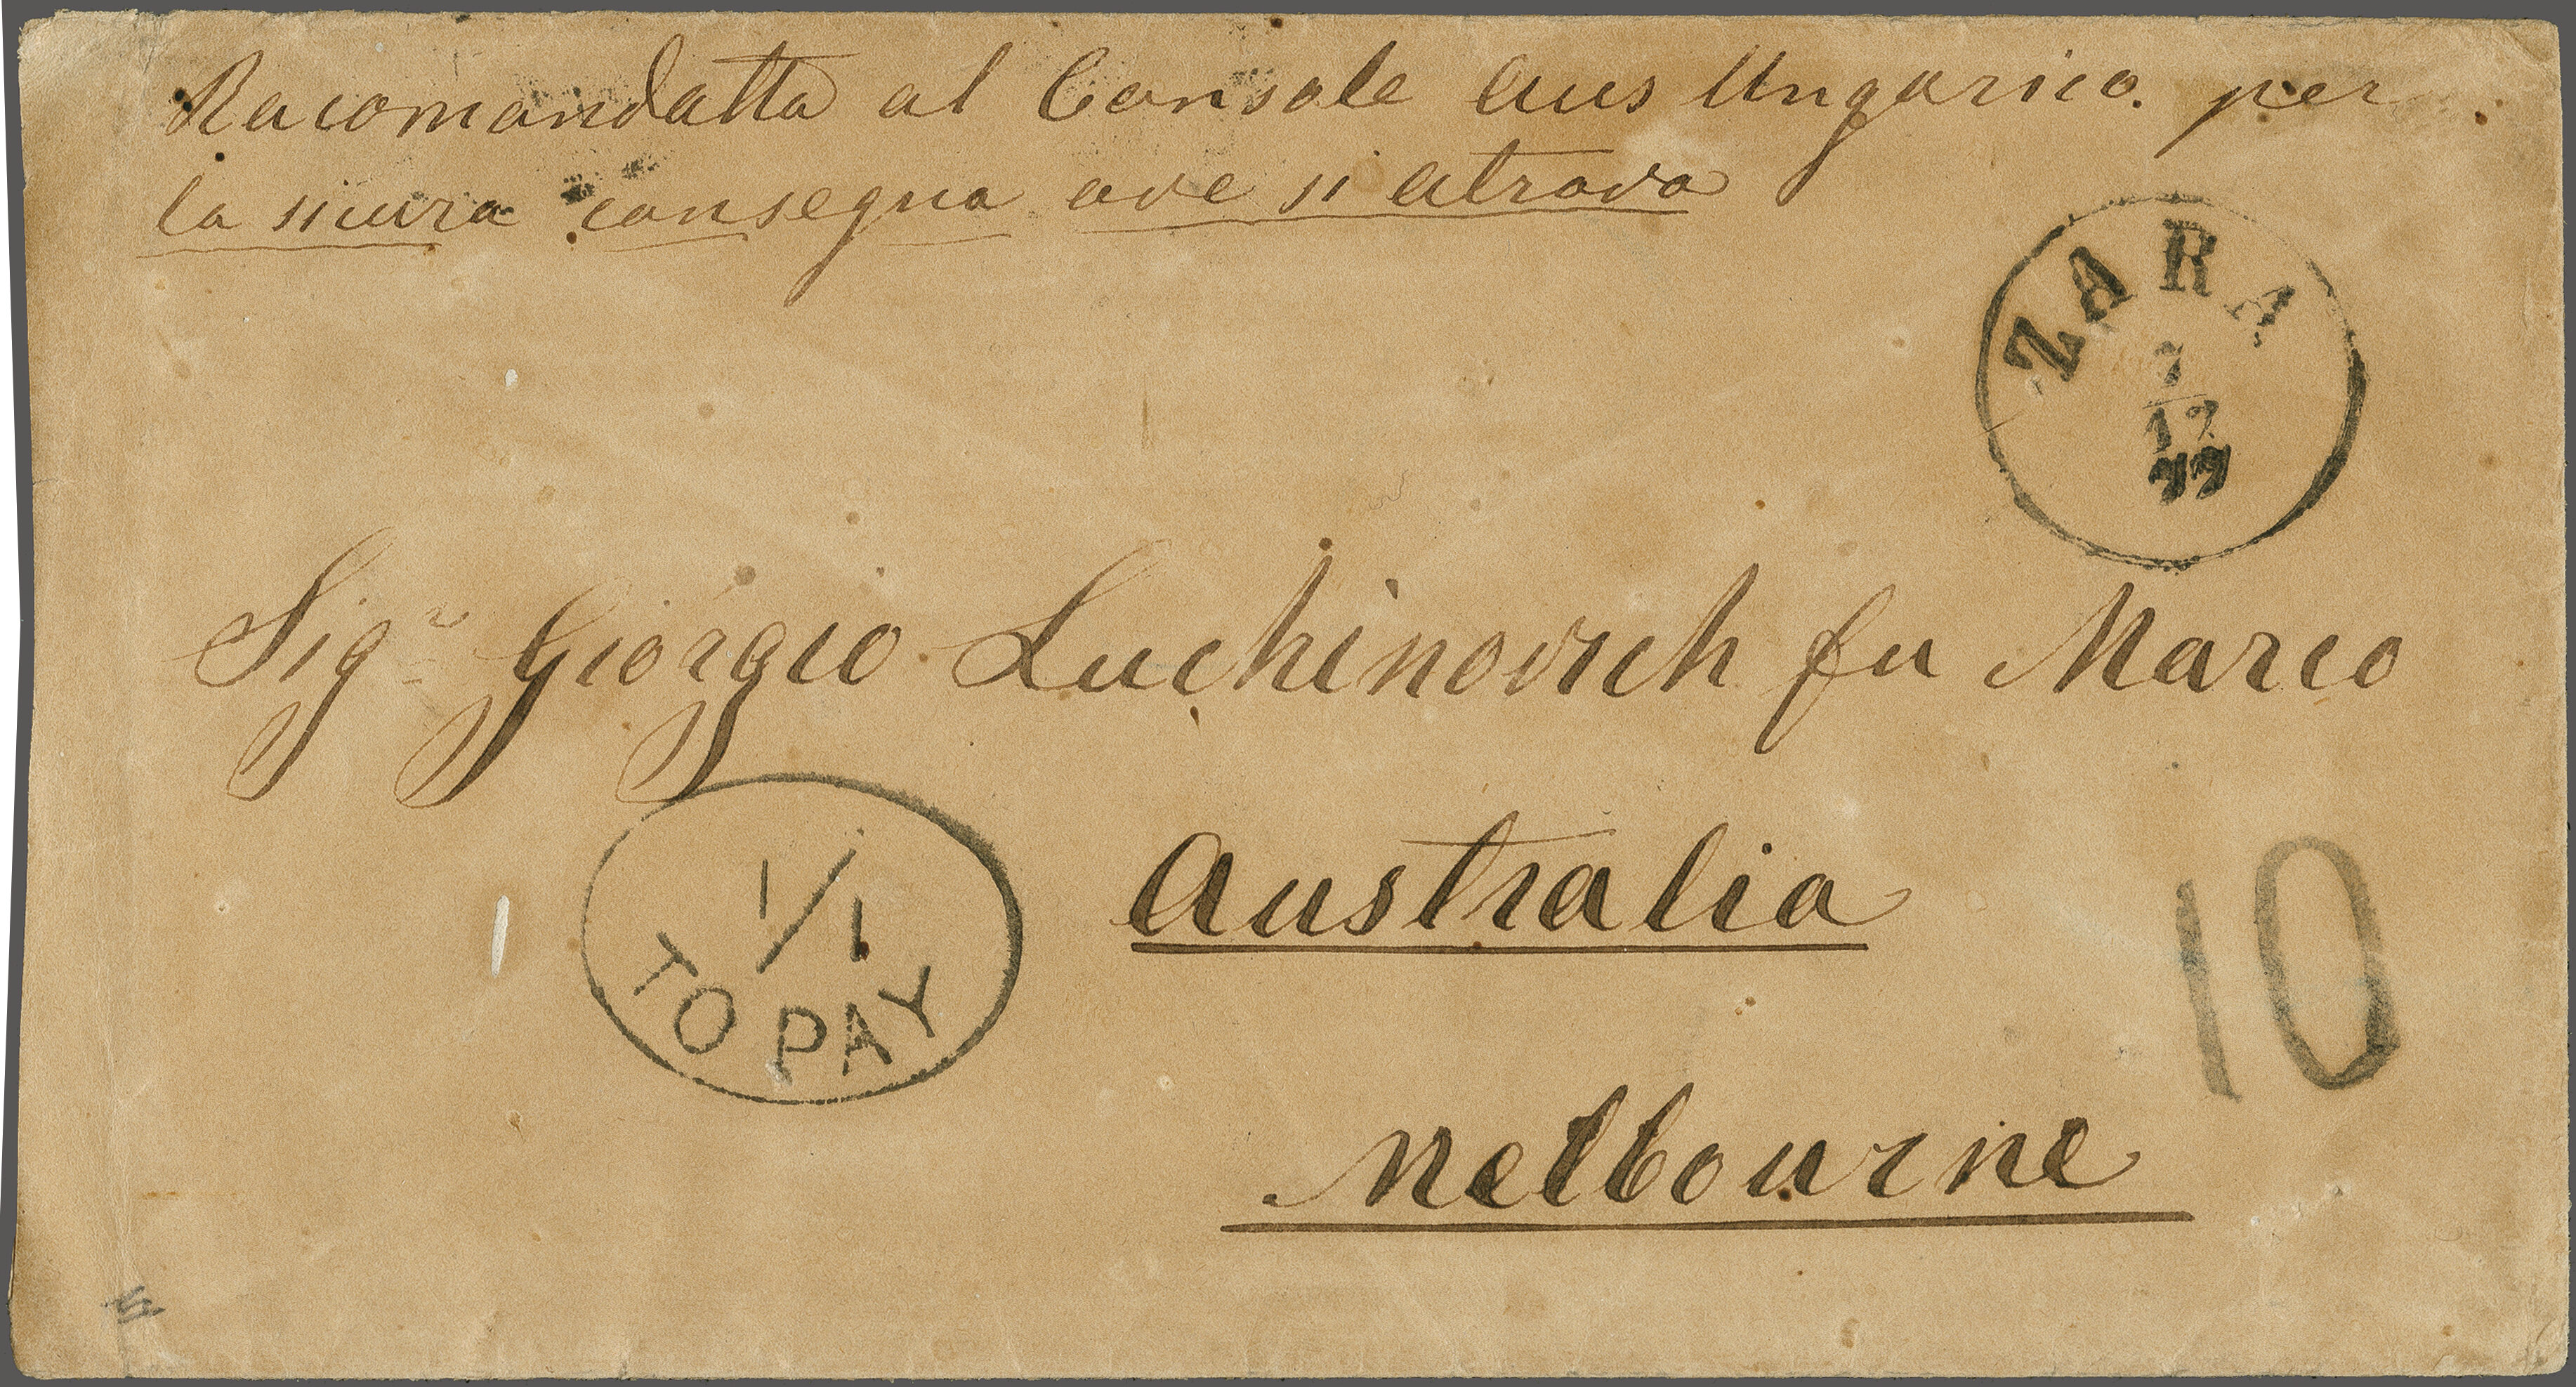 Racomandatta al Console Aus Ungarico. per
la sicura consegna ove si atrova
ZARA
7
12
77
Sigr Giorgio Luchinovich fu Marco
1/1
TO PAY
Australia
10
Melbourne